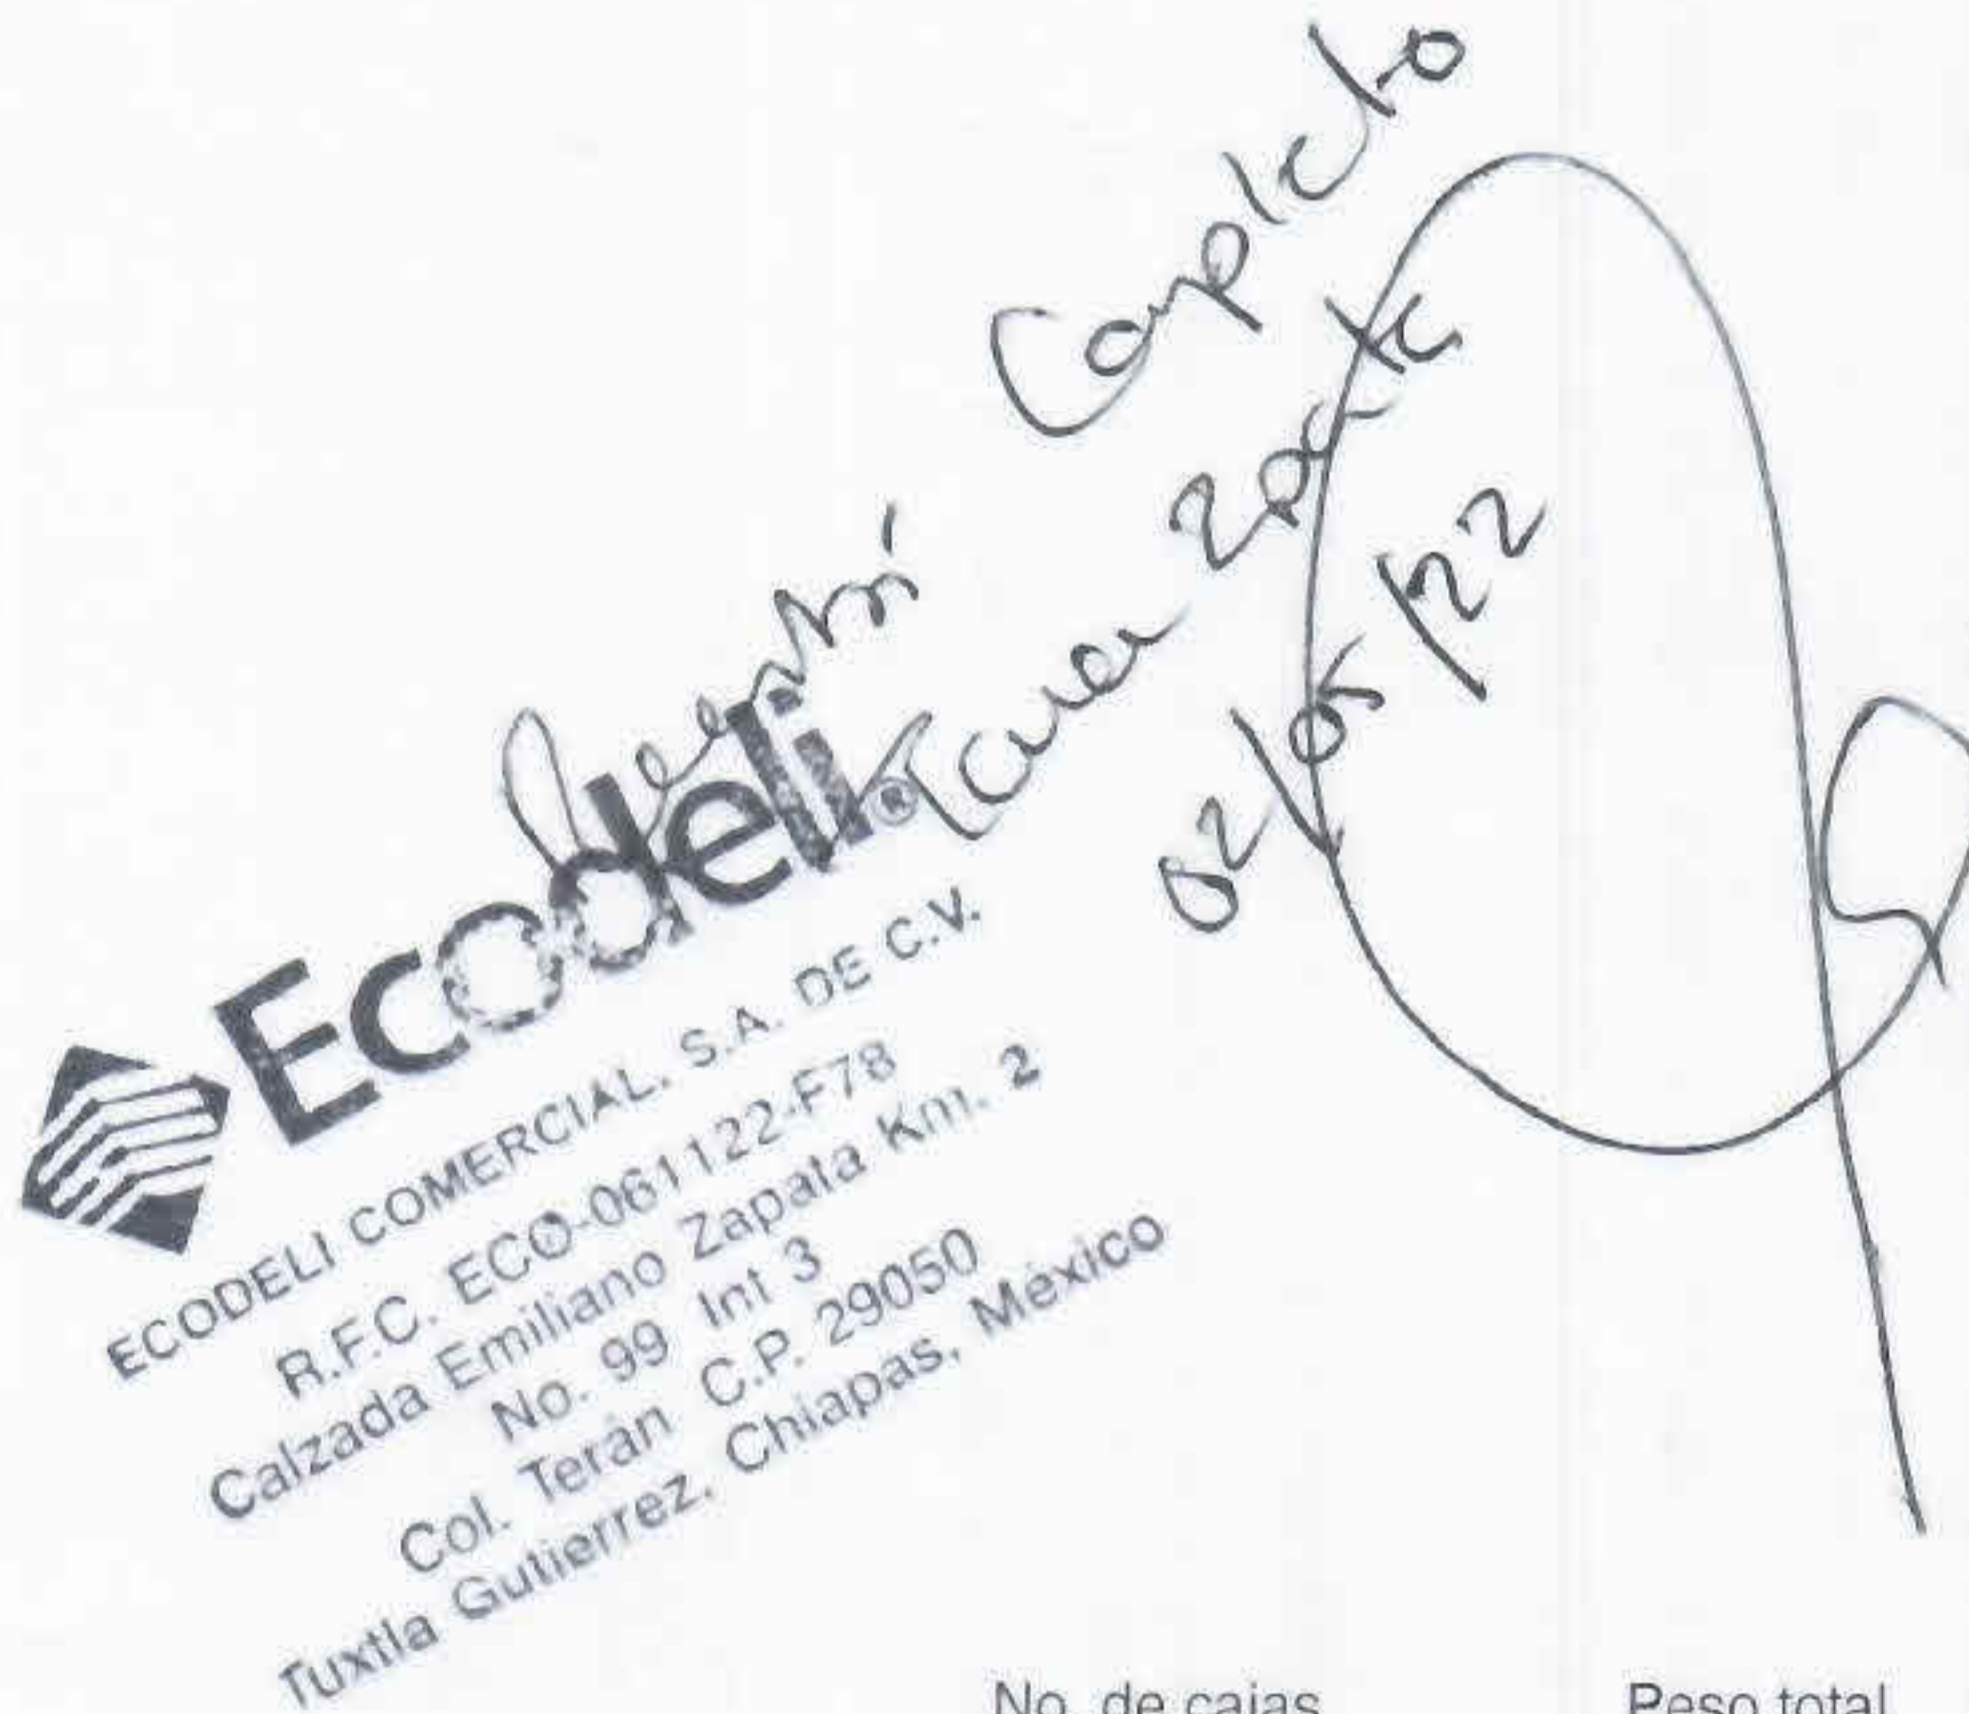 Completo
02/05/22
Ecodeli®
ECODELI COMERCIAL, S.A. DE C.V.
R.F.C. ECO-061122-F78
Calzada Emiliano Zapata Km. 2
No. 99 Int 3
Col. Terán C.P. 29050
Tuxtla Gutierrez, Chiapas, México
No. de cajas Peso total